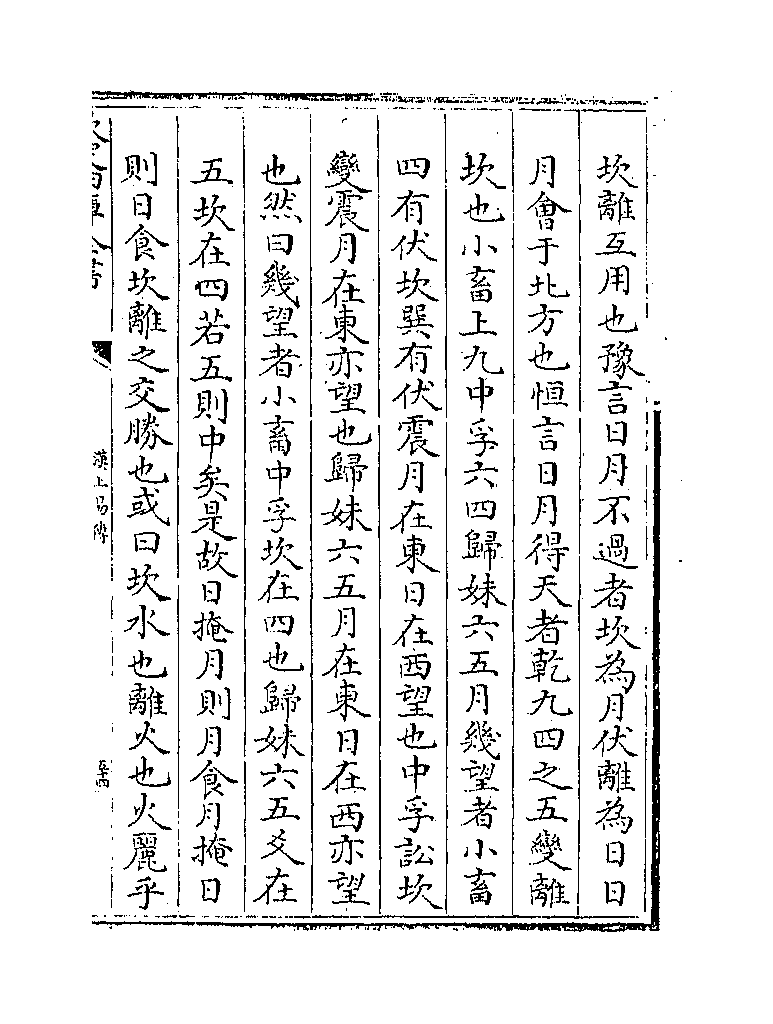 坎離互用也豫言日月不過者坎為月伏離為日日
月會于北方也恒言日月得天者乾九四之五變離
坎也小畜上九中孚六四歸妹六五月幾望者小畜
四有伏坎巽有伏震月在東日在西望也中孚訟坎
變震月在東亦望也歸妹六五月在東日在西亦望
也然曰幾望者小畜中孚坎在四也歸妹六五爻在
五坎在四若五則中矣是故日掩月則月食月掩日
則日食坎離之交勝也或曰坎水也離火也火麗乎
漢上易傳